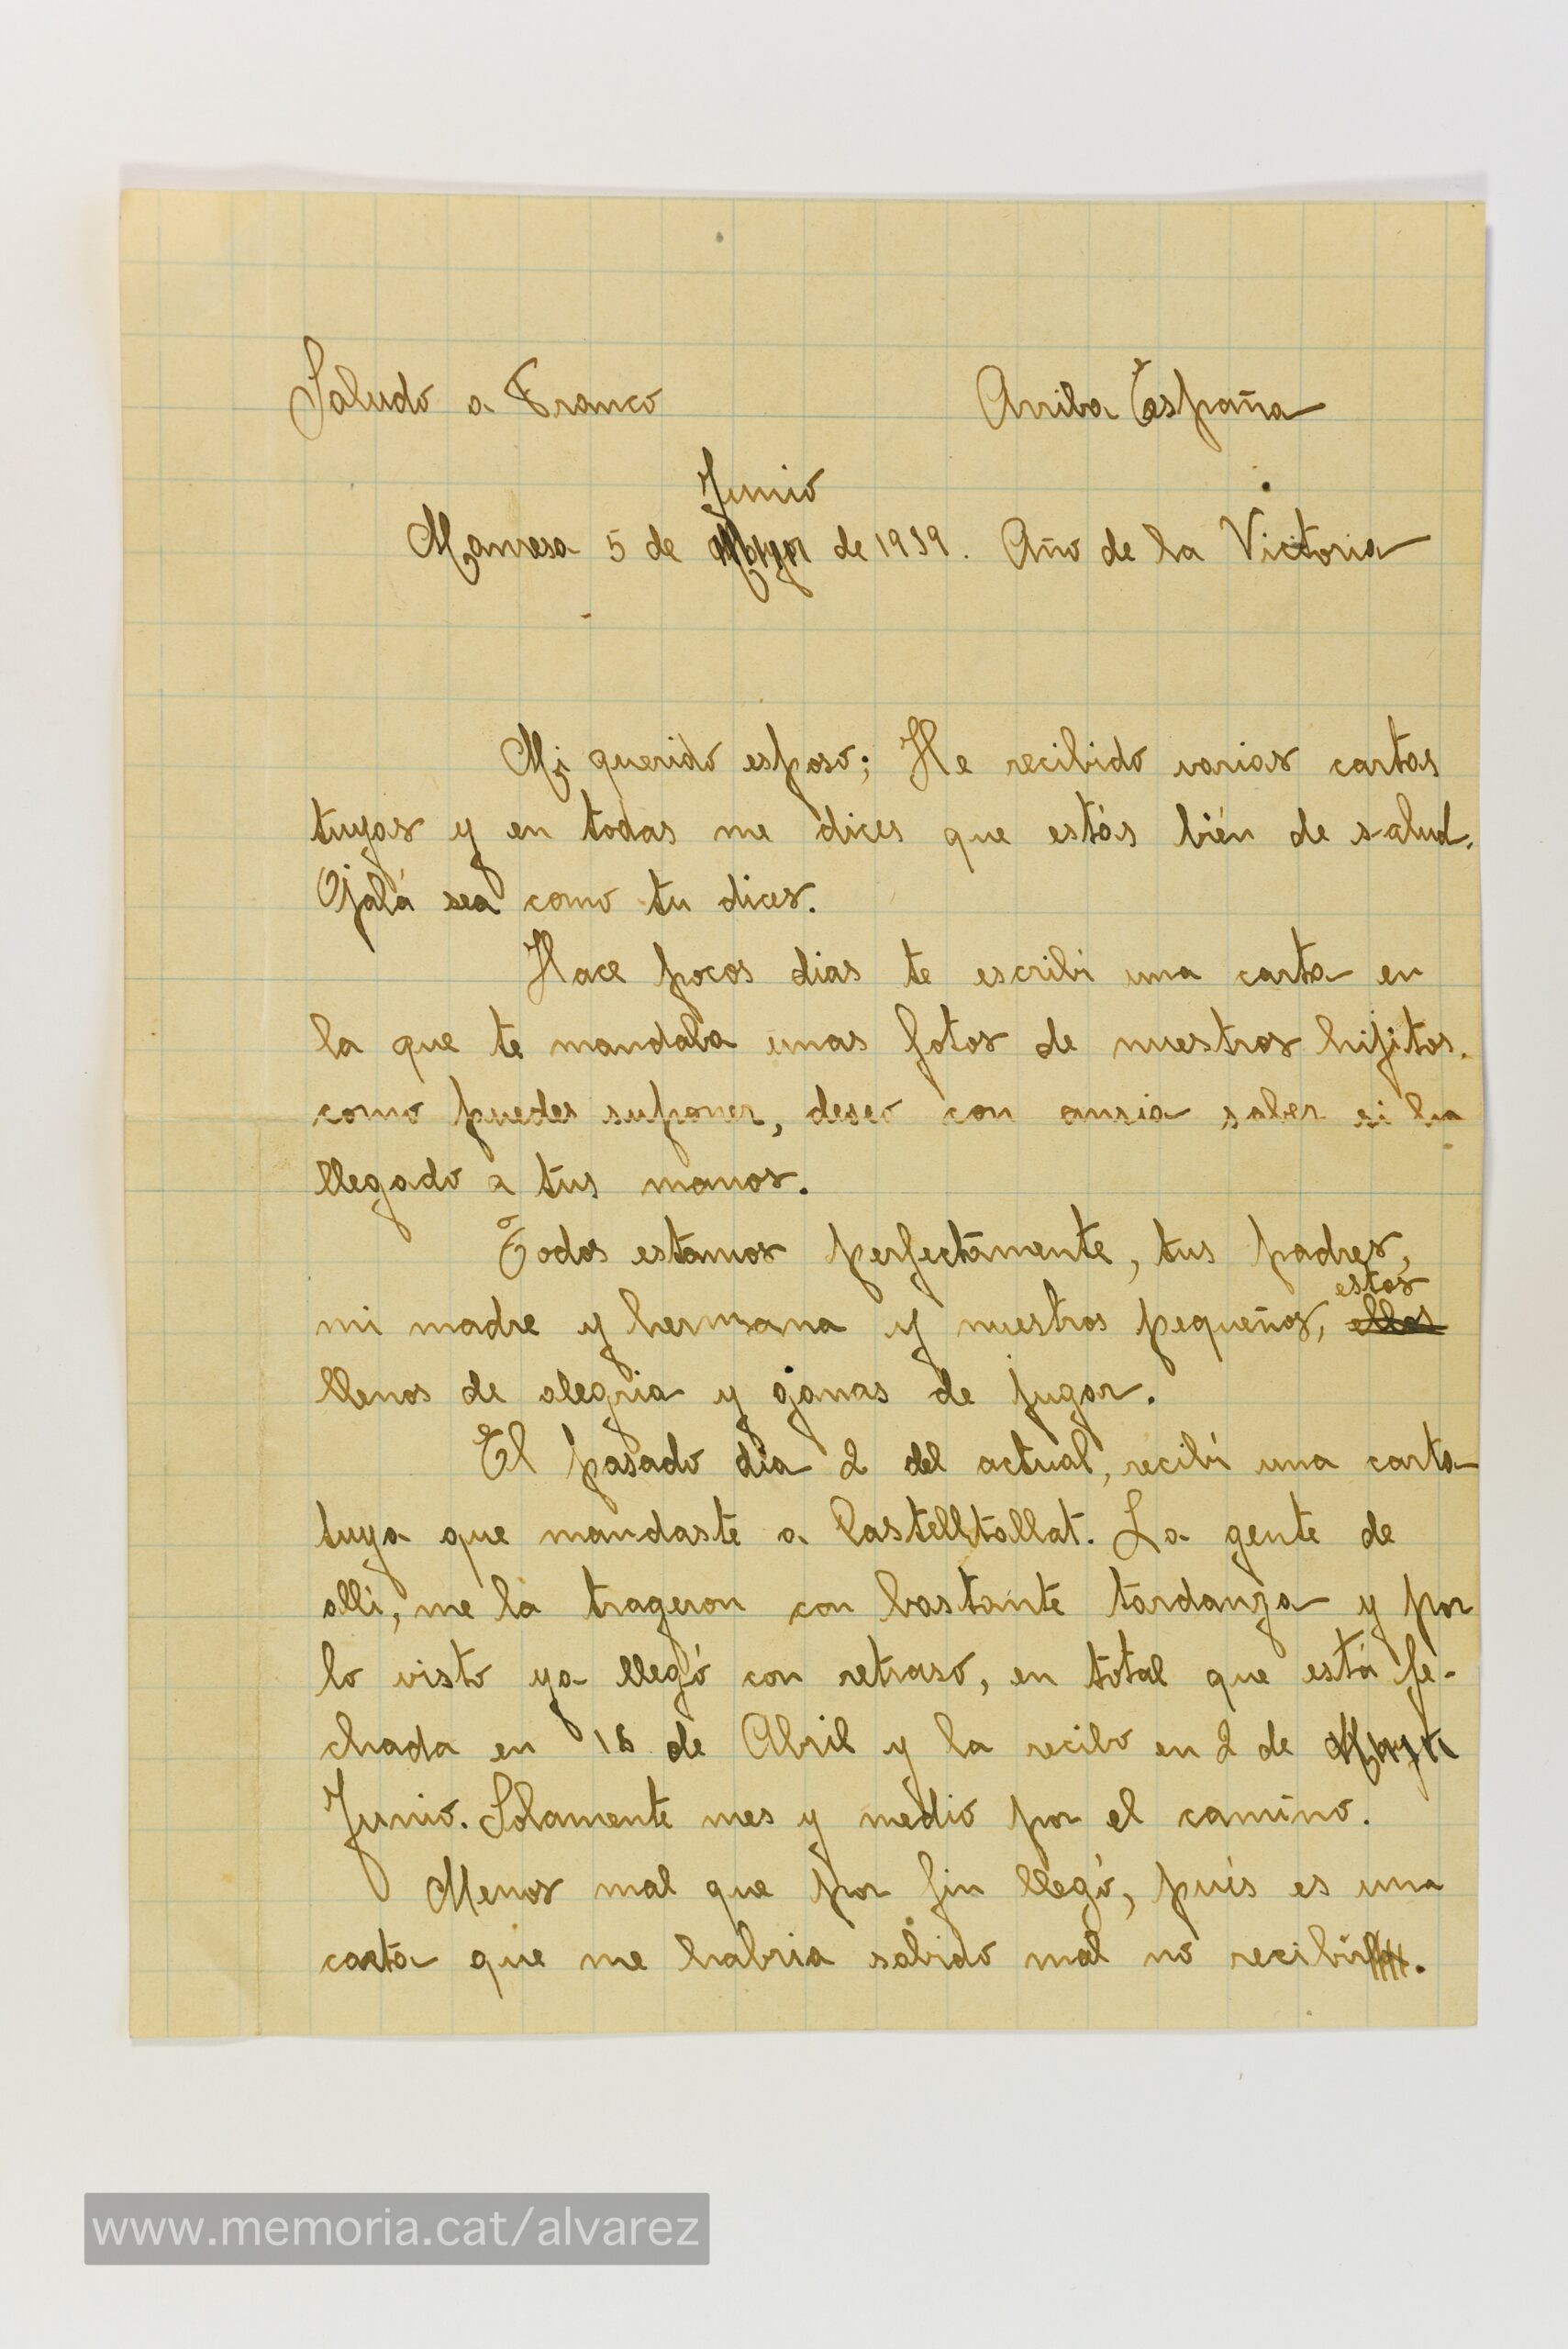 Saludo a Franco Arriba España
Junio
Manresa 5 de Mayo de 1939. Año de la Victoria
Mi querido esposo; He recibido varias cartas
tuyas y en todas me dices que estás bién de salud.
Ojalá sea como tu dices.
Hace pocos dias te escribi una carta en
la que te mandaba unas fotos de nuestros hijitos.
como puedes suponer, deseo con ansia saber si ha
llegado a tus manos.
Todos estamos perfectamente, tus padres,
estos
mi madre y hermana y nuestros pequeños, ellos
llenos de alegria y ganas de jugar.
El pasado dia 2 del actual, recibí una carta
tuya que mandaste a Castelltallat. La gente de
alli, me la trageron con bastante tardanza y por
lo visto ya llegó con retraso, en total que está fe-
chada en 18 de Abril y la recibo en 2 de
Junio. Solamente mes y medio por el camino.
Menos mal que por fin llegó, pués es una
carta que me habria sabido mal no recibirla.
www.memoria.cat/alvarez